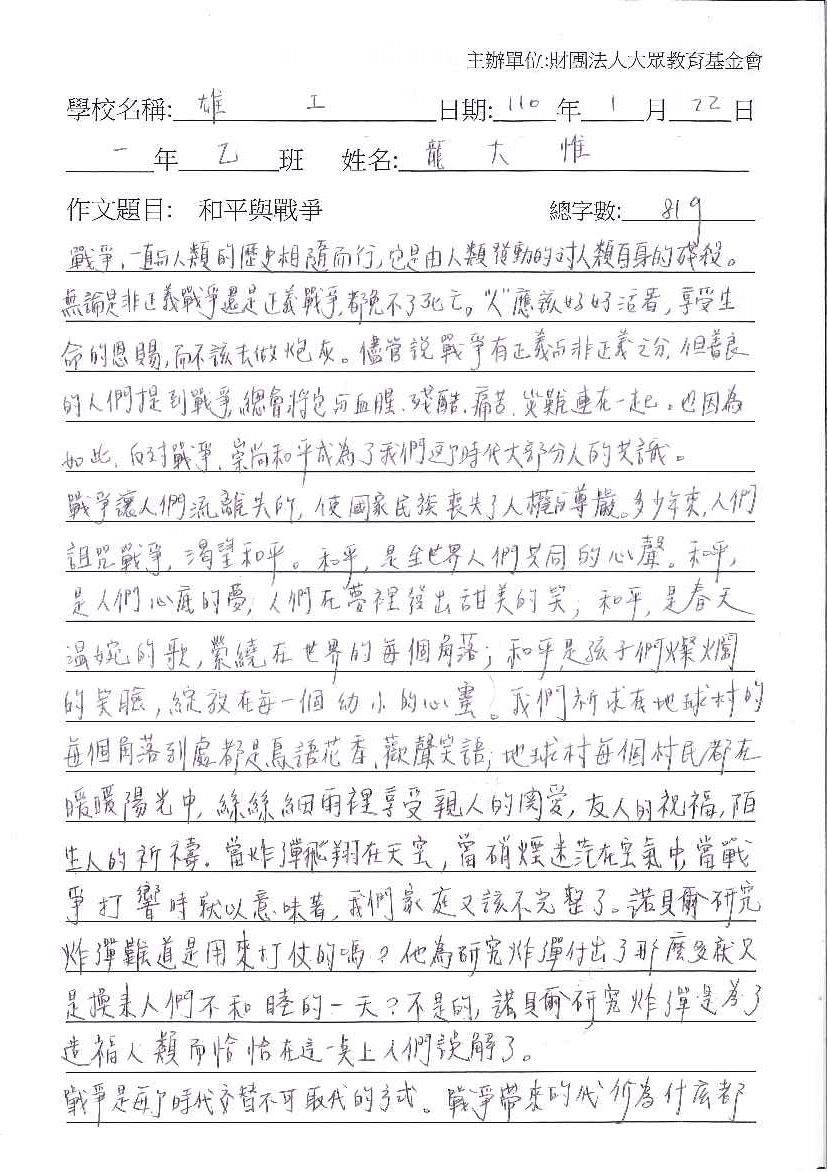 主辦單位:財團法人大眾教育基金會
學校名稱: 雄 工 日期: 110 年 1 月 22 日
一 年 乙 班 姓名: 龍 大 惟
作文題目: 和平與戰爭 總字數: 819
戰爭,一直与人類的歷史相隨而行,它是由人類發動的对人類自身的殘殺。
無論是非正義戰爭還是正義戰爭,都免不了死亡。"人"應該好好活着,享受生
命的恩賜,而不該去做炮灰。儘管說戰爭有正義与非正義之分,但善良
的人們提到戰爭,總會將它与血腥、殘酷、痛苦、災難連在一起。也因為
如此,反对戰爭,崇尚和平成為了我們这個時代大部分人的共識。
戰爭讓人們流離失所,使國家民族喪失了人權与尊嚴。多少年來,人們
詛咒戰爭,渴望和平。和平,是全世界人們共同的心聲。和平,
是人們心底的夢,人們在夢裡發出甜美的笑;和平,是春天
溫婉的歌,縈繞在世界的每個角落;和平是孩子們燦爛
的笑臉,綻放在每一個幼小的心靈。我們祈求在地球村的
每個角落到處都是鳥語花香,歡聲笑語;地球村每個村民都在
暖暖陽光中,絲絲細雨裡享受親人的関愛,友人的祝福,陌
生人的祈禱。當炸彈飛翔在天空,當硝煙迷茫在空氣中,當戰
爭打響時就以意味著,我們家庭又該不完整了。諾貝爾研究
炸彈難道是用來打仗的嗎?他為研究炸彈付出了那麼多就又
是換來人們不和睦的一天?不是的,諾貝爾研究炸彈是為了
造福人類而恰恰在這一臬上人們誤解了。
戰爭是每個時代交替不可取代的方式。戰爭帶來的代价為什麼都